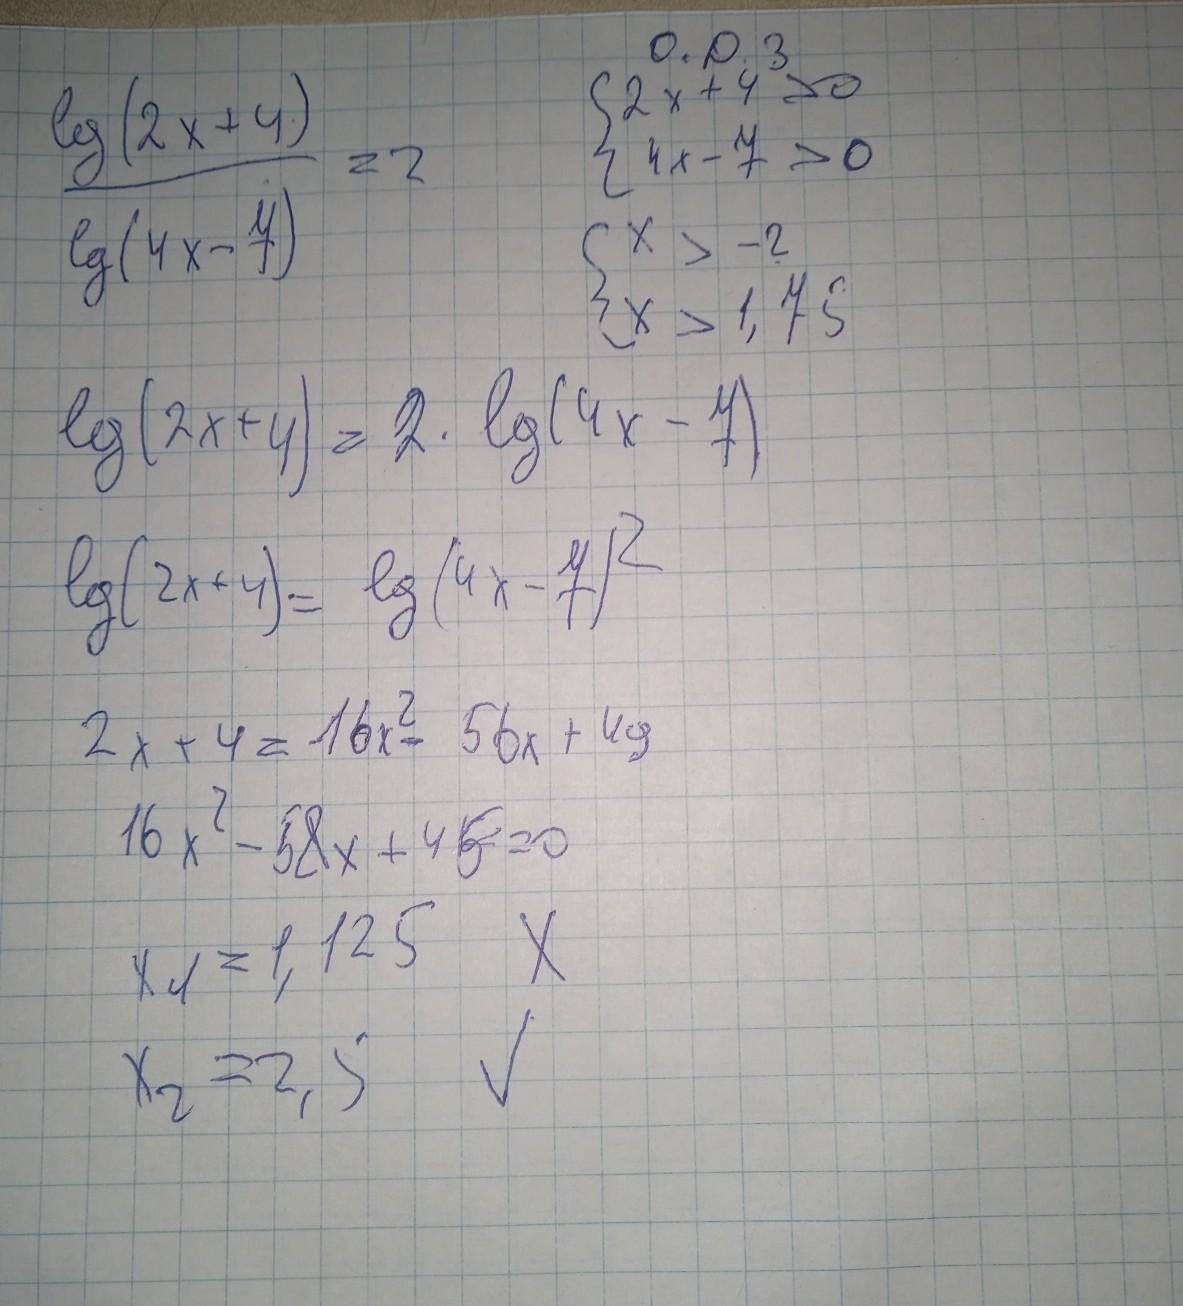 lg(2x+4)
lg(4x-7) = 2
О.D.З
2x+4 >0
4x-7 >0
x > -2
x > 1,75
lg(2x+4) = 2. lg(4x-7)
lg(2x+4) = lg(4x-7)²
2x+4 = 16x² - 56x + 49
16x² - 58x + 45 =0
x₁ = 1,125 X
x₂ = 2,5 ✓